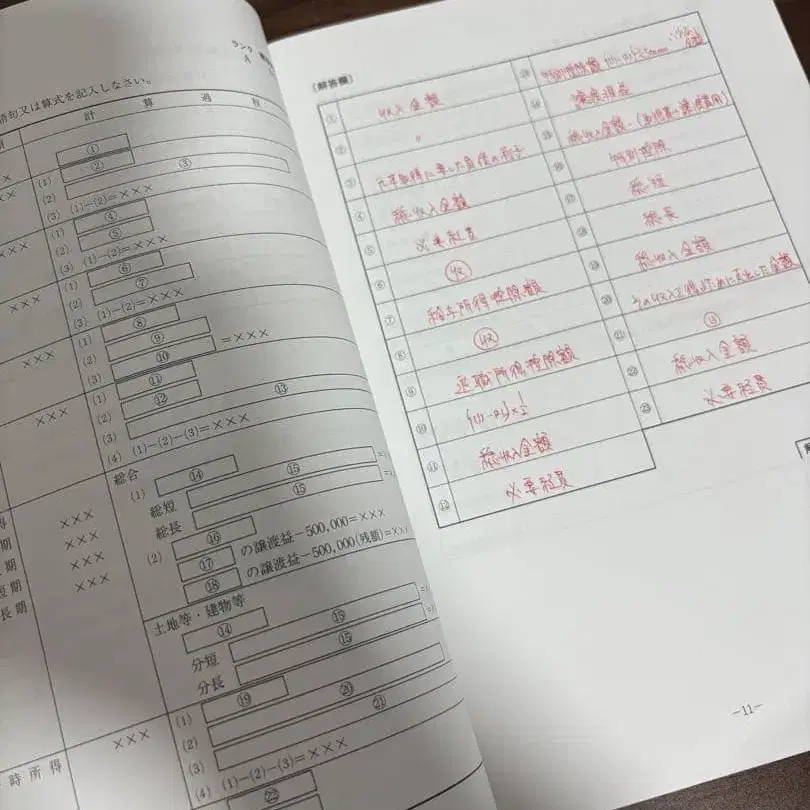 ランク
A
語句又は算式を記入しなさい。
計 算 過 程
××
(1) ①
(2) ② ③
(3) (1)−(2)=×××
×××
(1) ④
(2) ⑤
(3) (1)−(2)=×××
×××
(1) ⑥
(2) ⑦
(3) (1)−(2)=×××
×××
(1) ⑧
(2) ⑨ =×××
(3) ⑩
×××
(1) ⑪
(2) ⑫ ⑬
(4) (1)−(2)−(3)=×××
総合
(1) ⑭ ⑮
総短 ⑮
総長
(2) ⑯ の譲渡益−500,000=×××
⑰ の譲渡益−500,000(残額)=×××
⑱
得 ×××
期 ×××
期 ×××
短期 ×××
長期
土地等・建物等
⑭ ⑮
分短 ⑮
分長
(1) ⑲ ⑳
(2) ㉑
(3)
(4) (1)−(2)−(3)=×××
時所得 ×××
㉒
(解答欄)
① 収入金額
② 〃
③ 元本取得に要した負債の利子
④ 総収入金額
⑤ 必要経費
⑥ 収
⑦ 給与所得控除額
⑧ 収
⑨ 退職所得控除額
⑩ {(1)−(2)}×1/2
⑪ 総収入金額
⑫ 必要経費
⑬ 特別控除額
⑭ 譲渡損益
⑮ 総収入金額−(取得費+譲渡費用)
⑯ 特別控除
⑰ 総短
⑱ 総長
⑲ 総収入金額
⑳ その収入を得るために支出した金額
㉑
㉒ 総収入金額
㉓ 必要経費
−11−